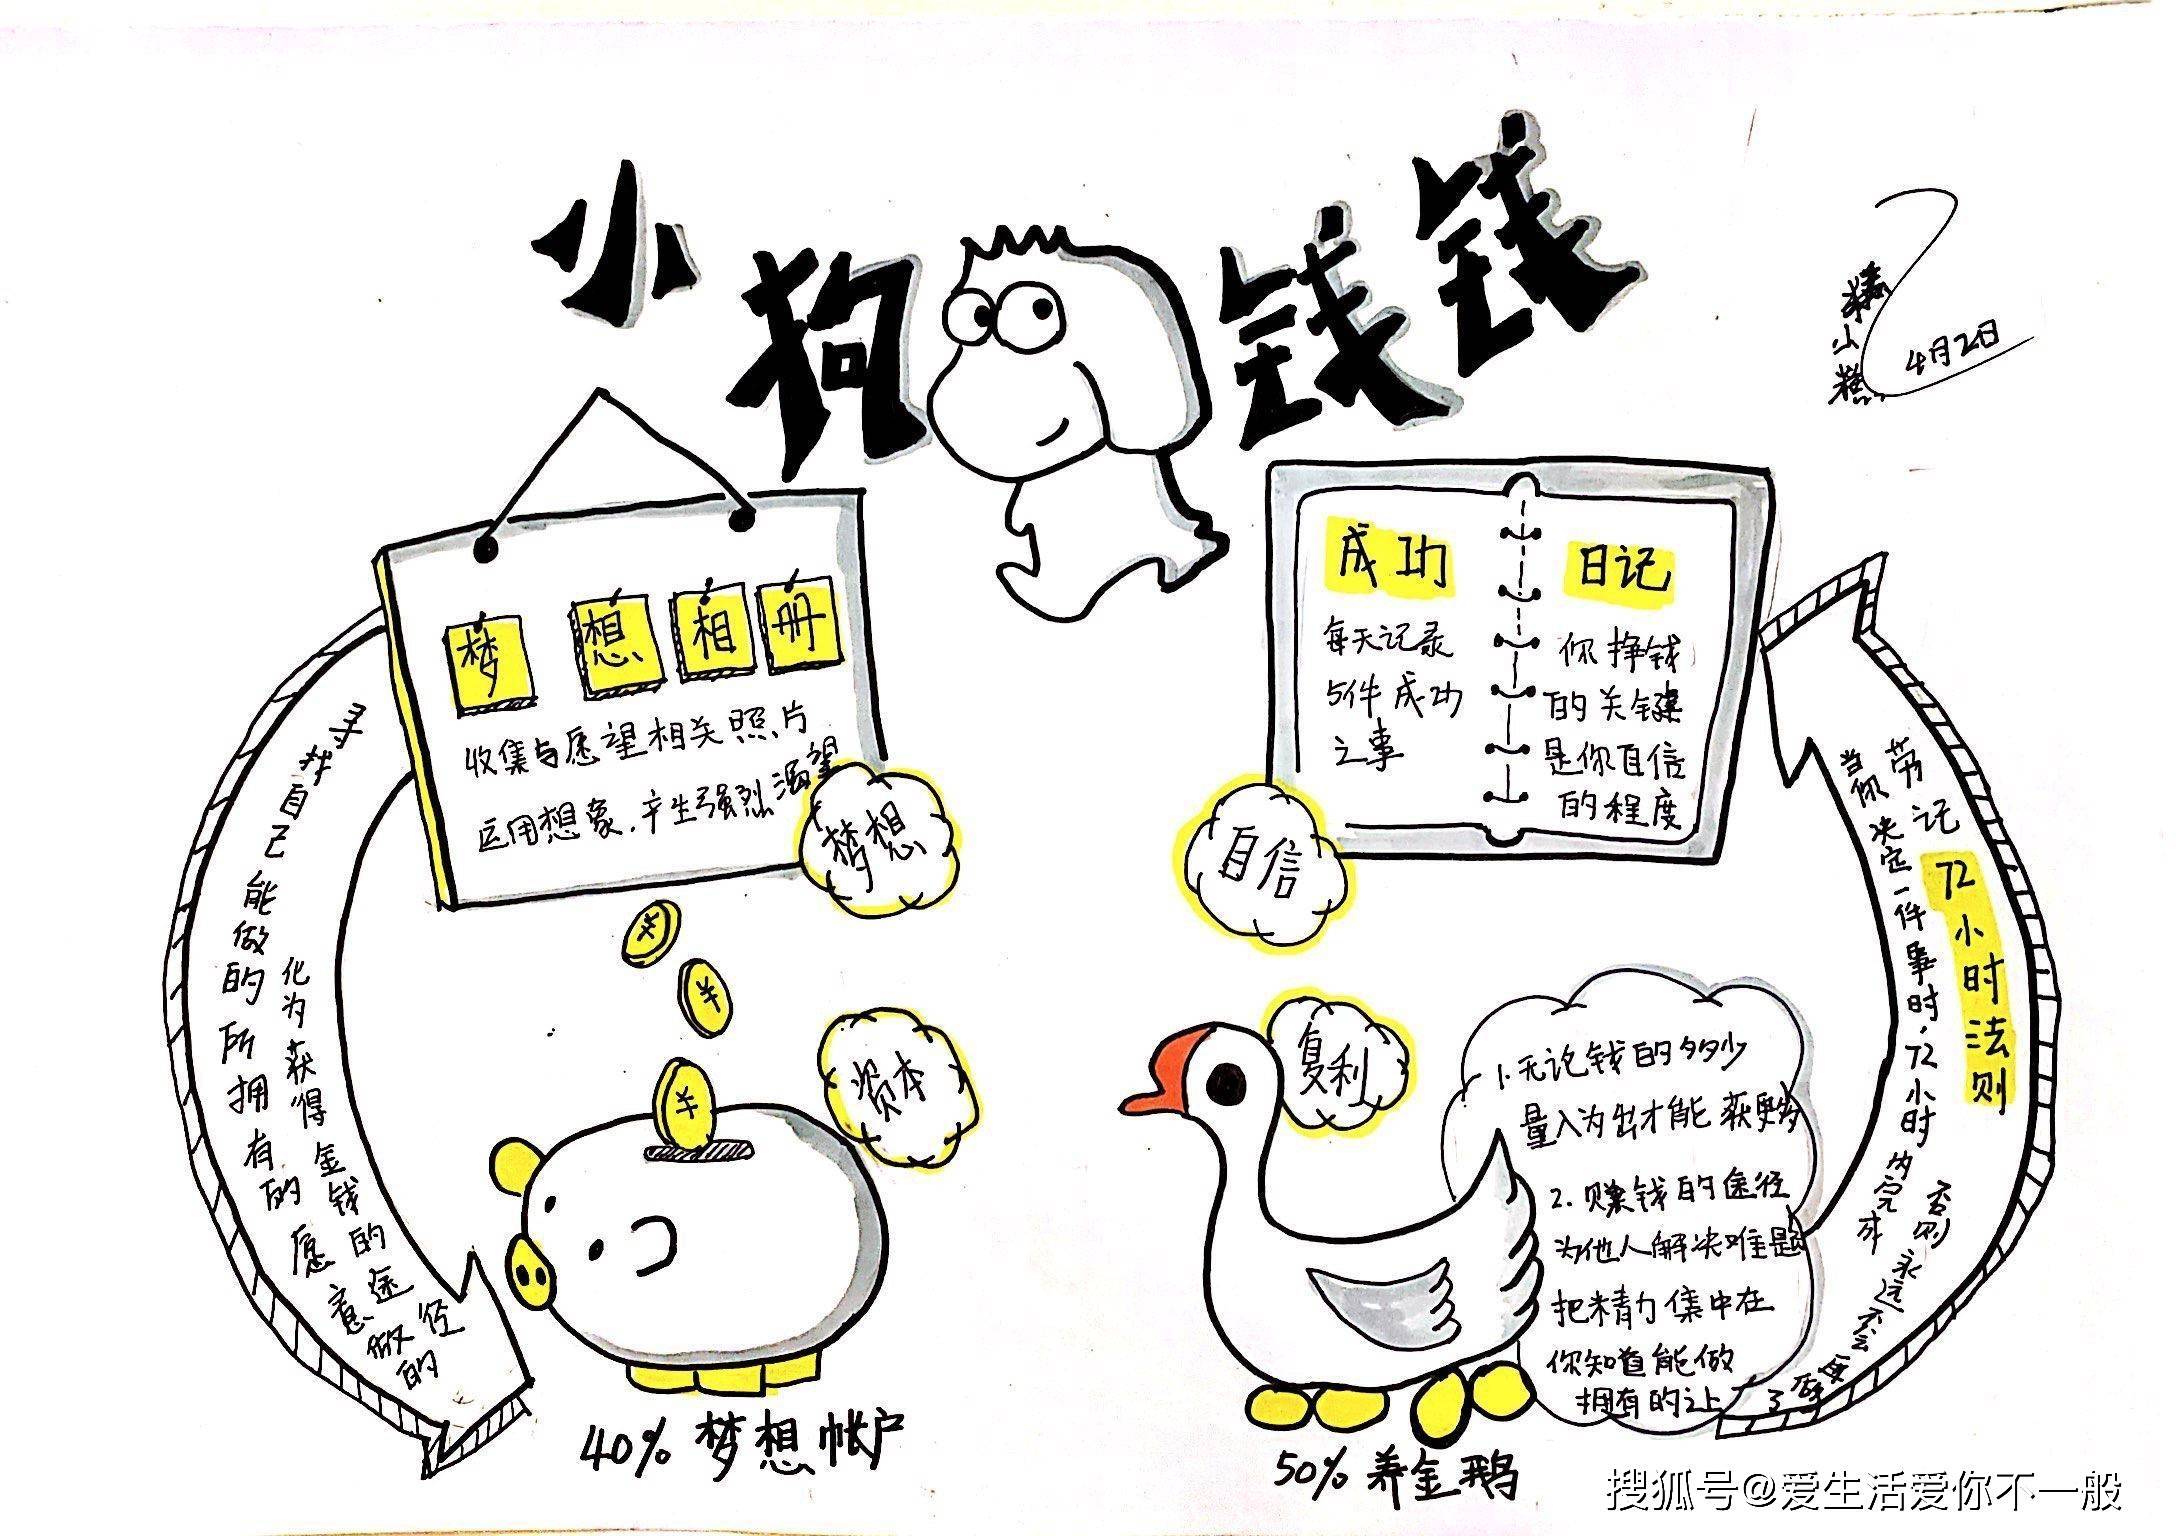 小狗钱钱
4月2日
梦想相册
收集与愿望相关照片
运用想象,产生强烈渴望
梦想
成功
每天记录
5件成功
之事
日记
你挣钱
的关键
是你自信
的程度
自信
寻找自己能做的所拥有的愿意做的
化为获得金钱的途径
劳记72小时法则
当你决定一件事时,72小时内完成
否则永远不会再做了
资本
40%梦想帐户
复利
1.无论钱的多少
量入为出才能获更多
2.赚钱的途径
为他人解决难题
把精力集中在
你知道能做
拥有的之上
50%养金鹅
搜狐号@爱生活爱你不一般